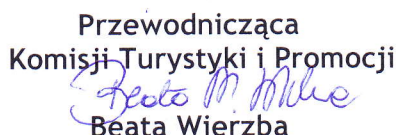 Przewodnicząca
Komisji Turystyki i Promocji
Beata Wierzba